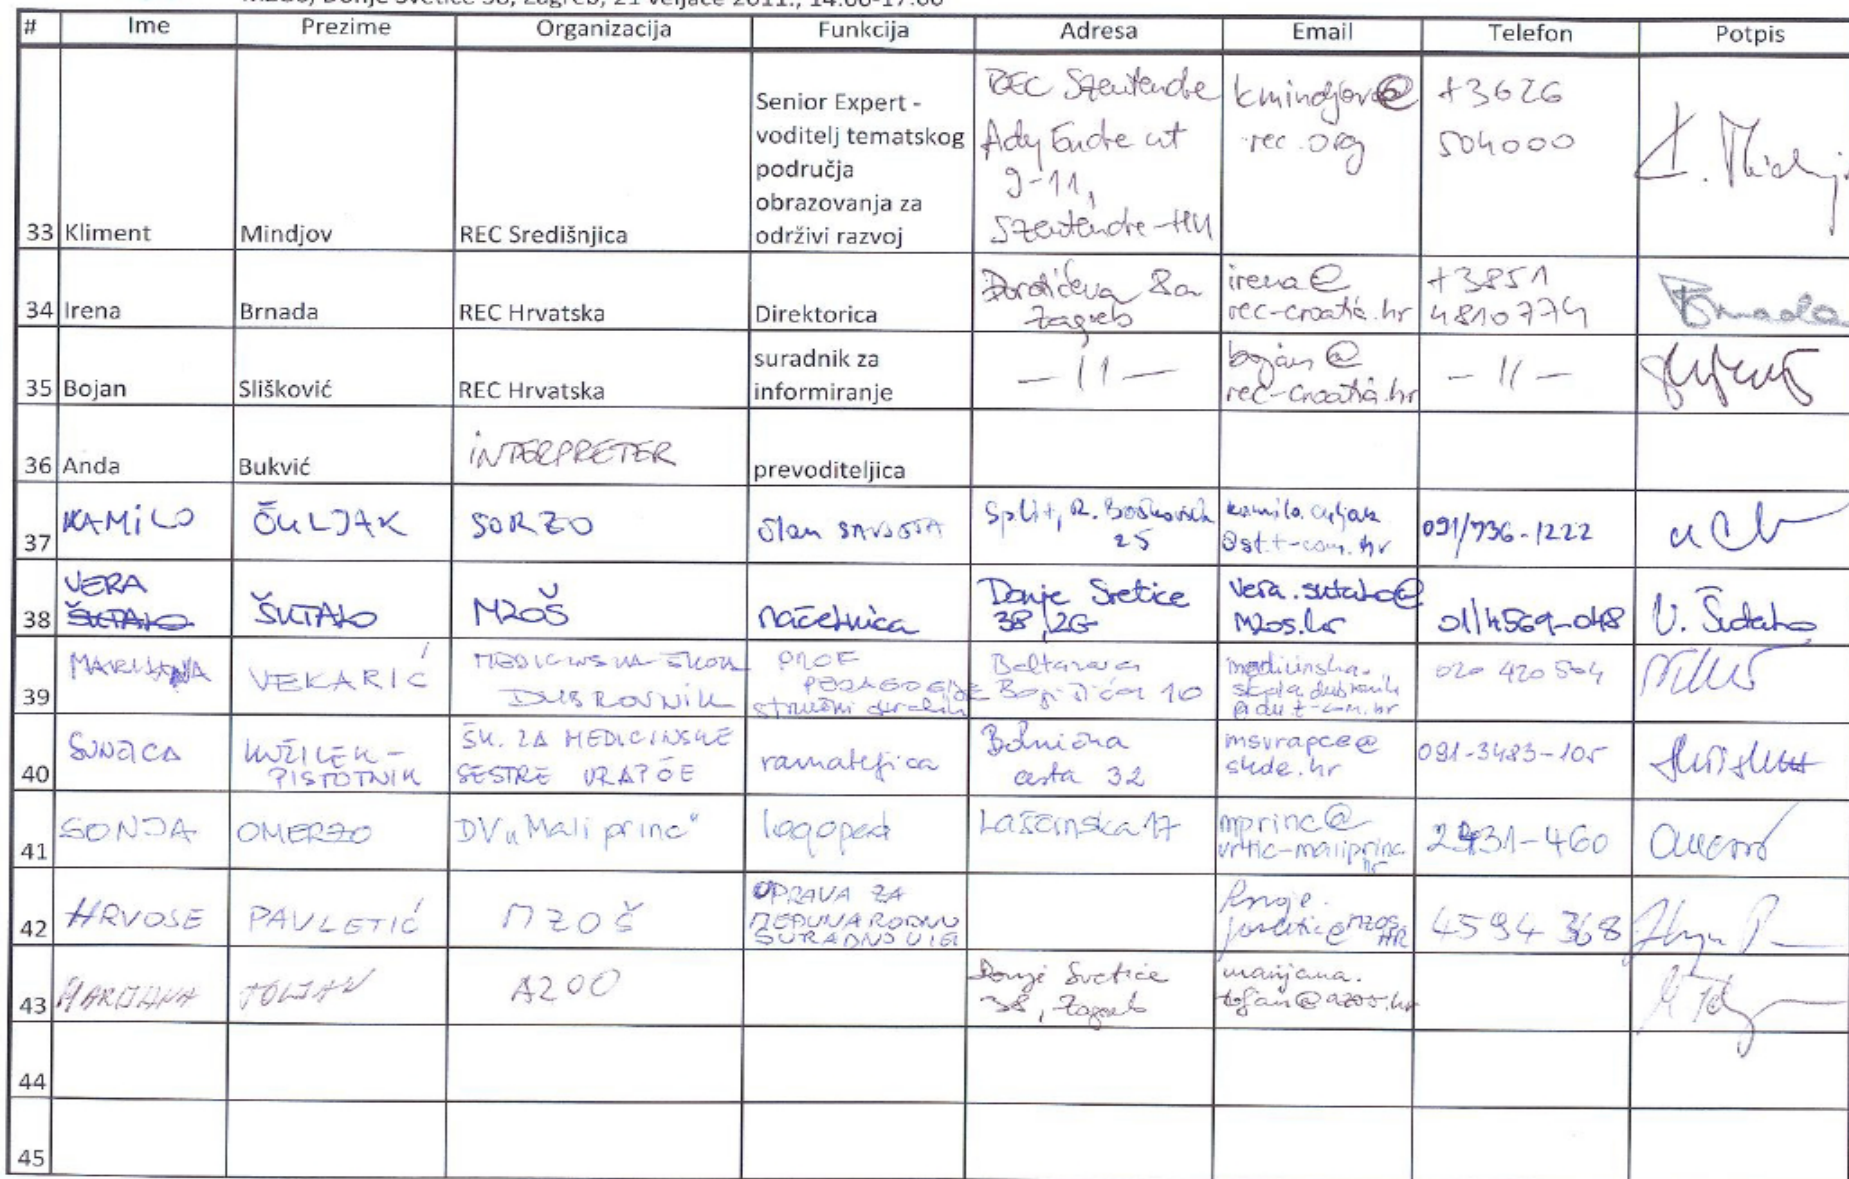 Donje Svetice 38, Zagreb, 21 veljače 2011., 14:00-17:00
# Ime Prezime Organizacija Funkcija Adresa Email Telefon Potpis
33 Kliment Mindjov REC Središnjica Senior Expert - voditelj tematskog područja obrazovanja za održivi razvoj REC Szentendre Ady Endre ut 9-11, Szentendre-HU kmindjov@rec.org +3626 504000
34 Irena Brnada REC Hrvatska Direktorica Zagreb irena@rec-croatia.hr +3851 4810774 Brnada
35 Bojan Slišković REC Hrvatska suradnik za informiranje -11- bojan@rec-croatia.hr -11-
36 Anda Bukvić INTERPRETER prevoditeljica
37 KAMILO ČULJAK SORZO član SAVJETA Split, R. Boškovića 25 kamilo.culjak@st.t-com.hr 091/736-1222
38 VERA ŠUTALO ŠUTALO MZOŠ načelnica Donje Svetice 38, ZG vera.sutalo@mzos.hr 01/4569-048 V. Šutalo
39 MARIJANA VEKARIĆ MEDICINSKA ŠKOLA DUBROVNIK PROF PEDAGOGIJE stručni suradnik Baltazara Bogišića 10 medicinska-skola.dubrovnik@du.t-com.hr 020 420 504
40 SUNČICA KUŽILEK-PISTOTNIK ŠK. ZA MEDICINSKE SESTRE VRAPČE ravnateljica Bolnička cesta 32 msvrapce@skde.hr 091-3483-105
41 SONJA OMERZO DV "Mali princ" logoped Lašćinska 17 mprinc@vrtic-maliprinc.hr 2431-460
42 HRVOJE PAVLETIĆ MZOŠ UPRAVA ZA MEĐUNARODNU SURADNJU I EI 4594 368
43 MARIJANA TOLJAN AZOO Donje Svetice 38, Zagreb marijana.toljan@azoo.hr
44
45